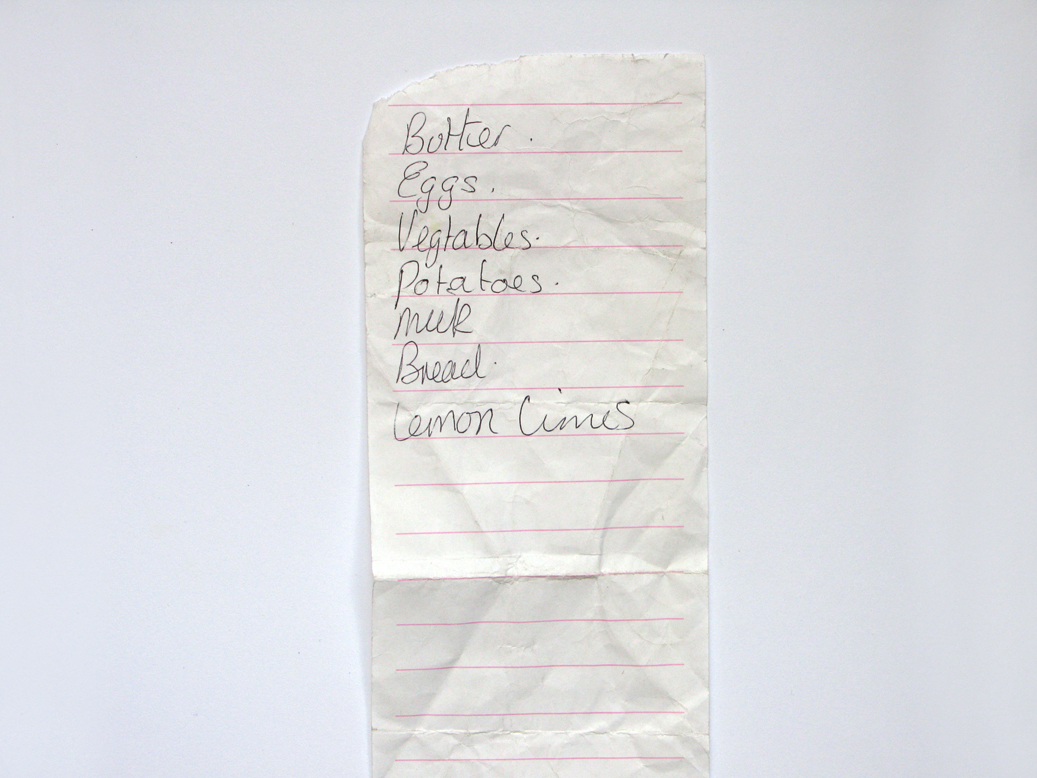 Butter.
Eggs.
Vegtables.
Potatoes.
Milk
Bread.
Lemon Limes